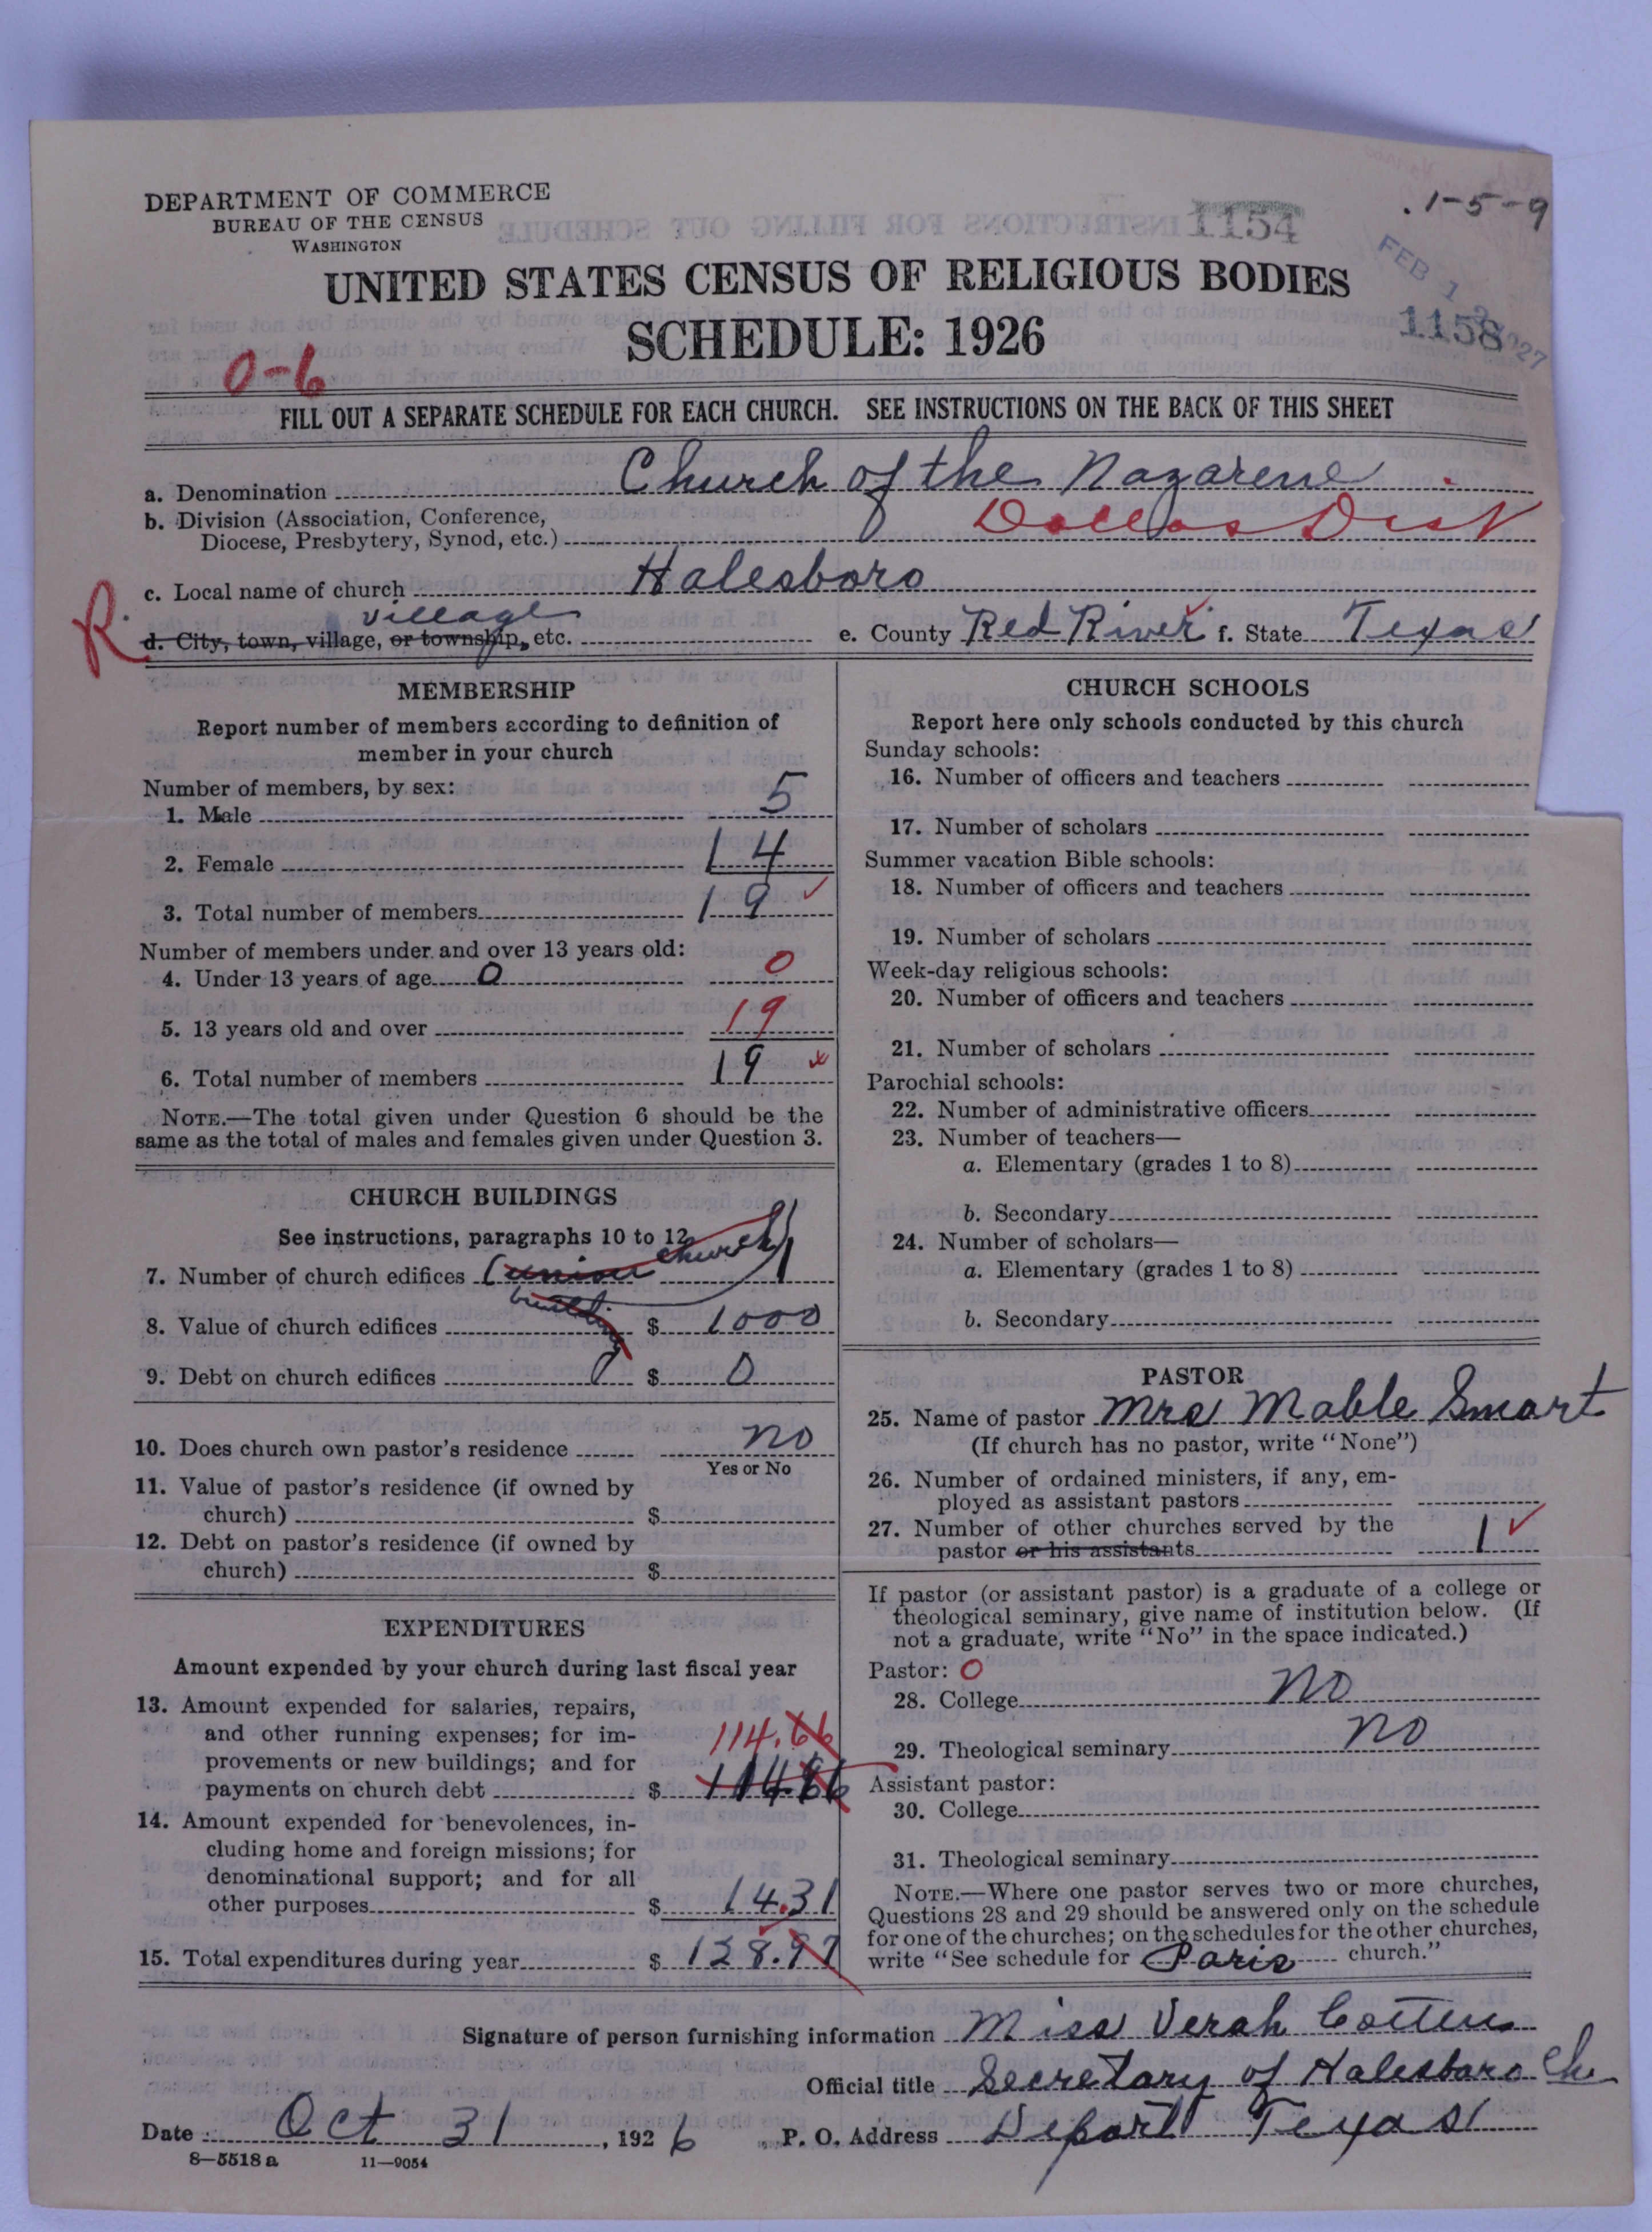 DEPARTMENT OF COMMERCE
BUREAU OF THE CENSUS
WASHINGTON
1154
1-5-9
FEB 1 1927
1158
UNITED STATES CENSUS OF RELIGIOUS BODIES
SCHEDULE: 1926
0-6
FILL OUT A SEPARATE SCHEDULE FOR EACH CHURCH. SEE INSTRUCTIONS ON THE BACK OF THIS SHEET
a. Denomination Church of the Nazarene
b. Division (Association, Conference,
Diocese, Presbytery, Synod, etc.) Dallas Dist
c. Local name of church Halesboro
R. d. City, town, village, or township, etc. village e. County Red River f. State Texas
MEMBERSHIP
Report number of members according to definition of
member in your church
Number of members, by sex:
1. Male 5
2. Female 14
3. Total number of members 19
Number of members under and over 13 years old:
4. Under 13 years of age 0 0
5. 13 years old and over 19
6. Total number of members 19
NOTE.—The total given under Question 6 should be the
same as the total of males and females given under Question 3.
CHURCH BUILDINGS
See instructions, paragraphs 10 to 12
7. Number of church edifices (union church) 1
8. Value of church edifices $ 1000
9. Debt on church edifices 0 $ 0
10. Does church own pastor's residence no
Yes or No
11. Value of pastor's residence (if owned by
church) $
12. Debt on pastor's residence (if owned by
church) $
EXPENDITURES
Amount expended by your church during last fiscal year
13. Amount expended for salaries, repairs,
and other running expenses; for im-
provements or new buildings; and for
payments on church debt $ 114.66
14. Amount expended for benevolences, in-
cluding home and foreign missions; for
denominational support; and for all
other purposes $ 14.31
15. Total expenditures during year $ 128.97
CHURCH SCHOOLS
Report here only schools conducted by this church
Sunday schools:
16. Number of officers and teachers
17. Number of scholars
Summer vacation Bible schools:
18. Number of officers and teachers
19. Number of scholars
Week-day religious schools:
20. Number of officers and teachers
21. Number of scholars
Parochial schools:
22. Number of administrative officers
23. Number of teachers—
a. Elementary (grades 1 to 8)
b. Secondary
24. Number of scholars—
a. Elementary (grades 1 to 8)
b. Secondary
PASTOR
25. Name of pastor Mrs Mable Smart
(If church has no pastor, write "None")
26. Number of ordained ministers, if any, em-
ployed as assistant pastors
27. Number of other churches served by the
pastor or his assistants 1
If pastor (or assistant pastor) is a graduate of a college or
theological seminary, give name of institution below. (If
not a graduate, write "No" in the space indicated.)
Pastor: 0
28. College no
29. Theological seminary no
Assistant pastor:
30. College
31. Theological seminary
NOTE.—Where one pastor serves two or more churches,
Questions 28 and 29 should be answered only on the schedule
for one of the churches; on the schedules for the other churches,
write "See schedule for Paris church."
Signature of person furnishing information Miss Verah
Official title Secretary of Halesboro Ch
Date Oct 31, 1926 P. O. Address Deport Texas
8—5518a 11—9054